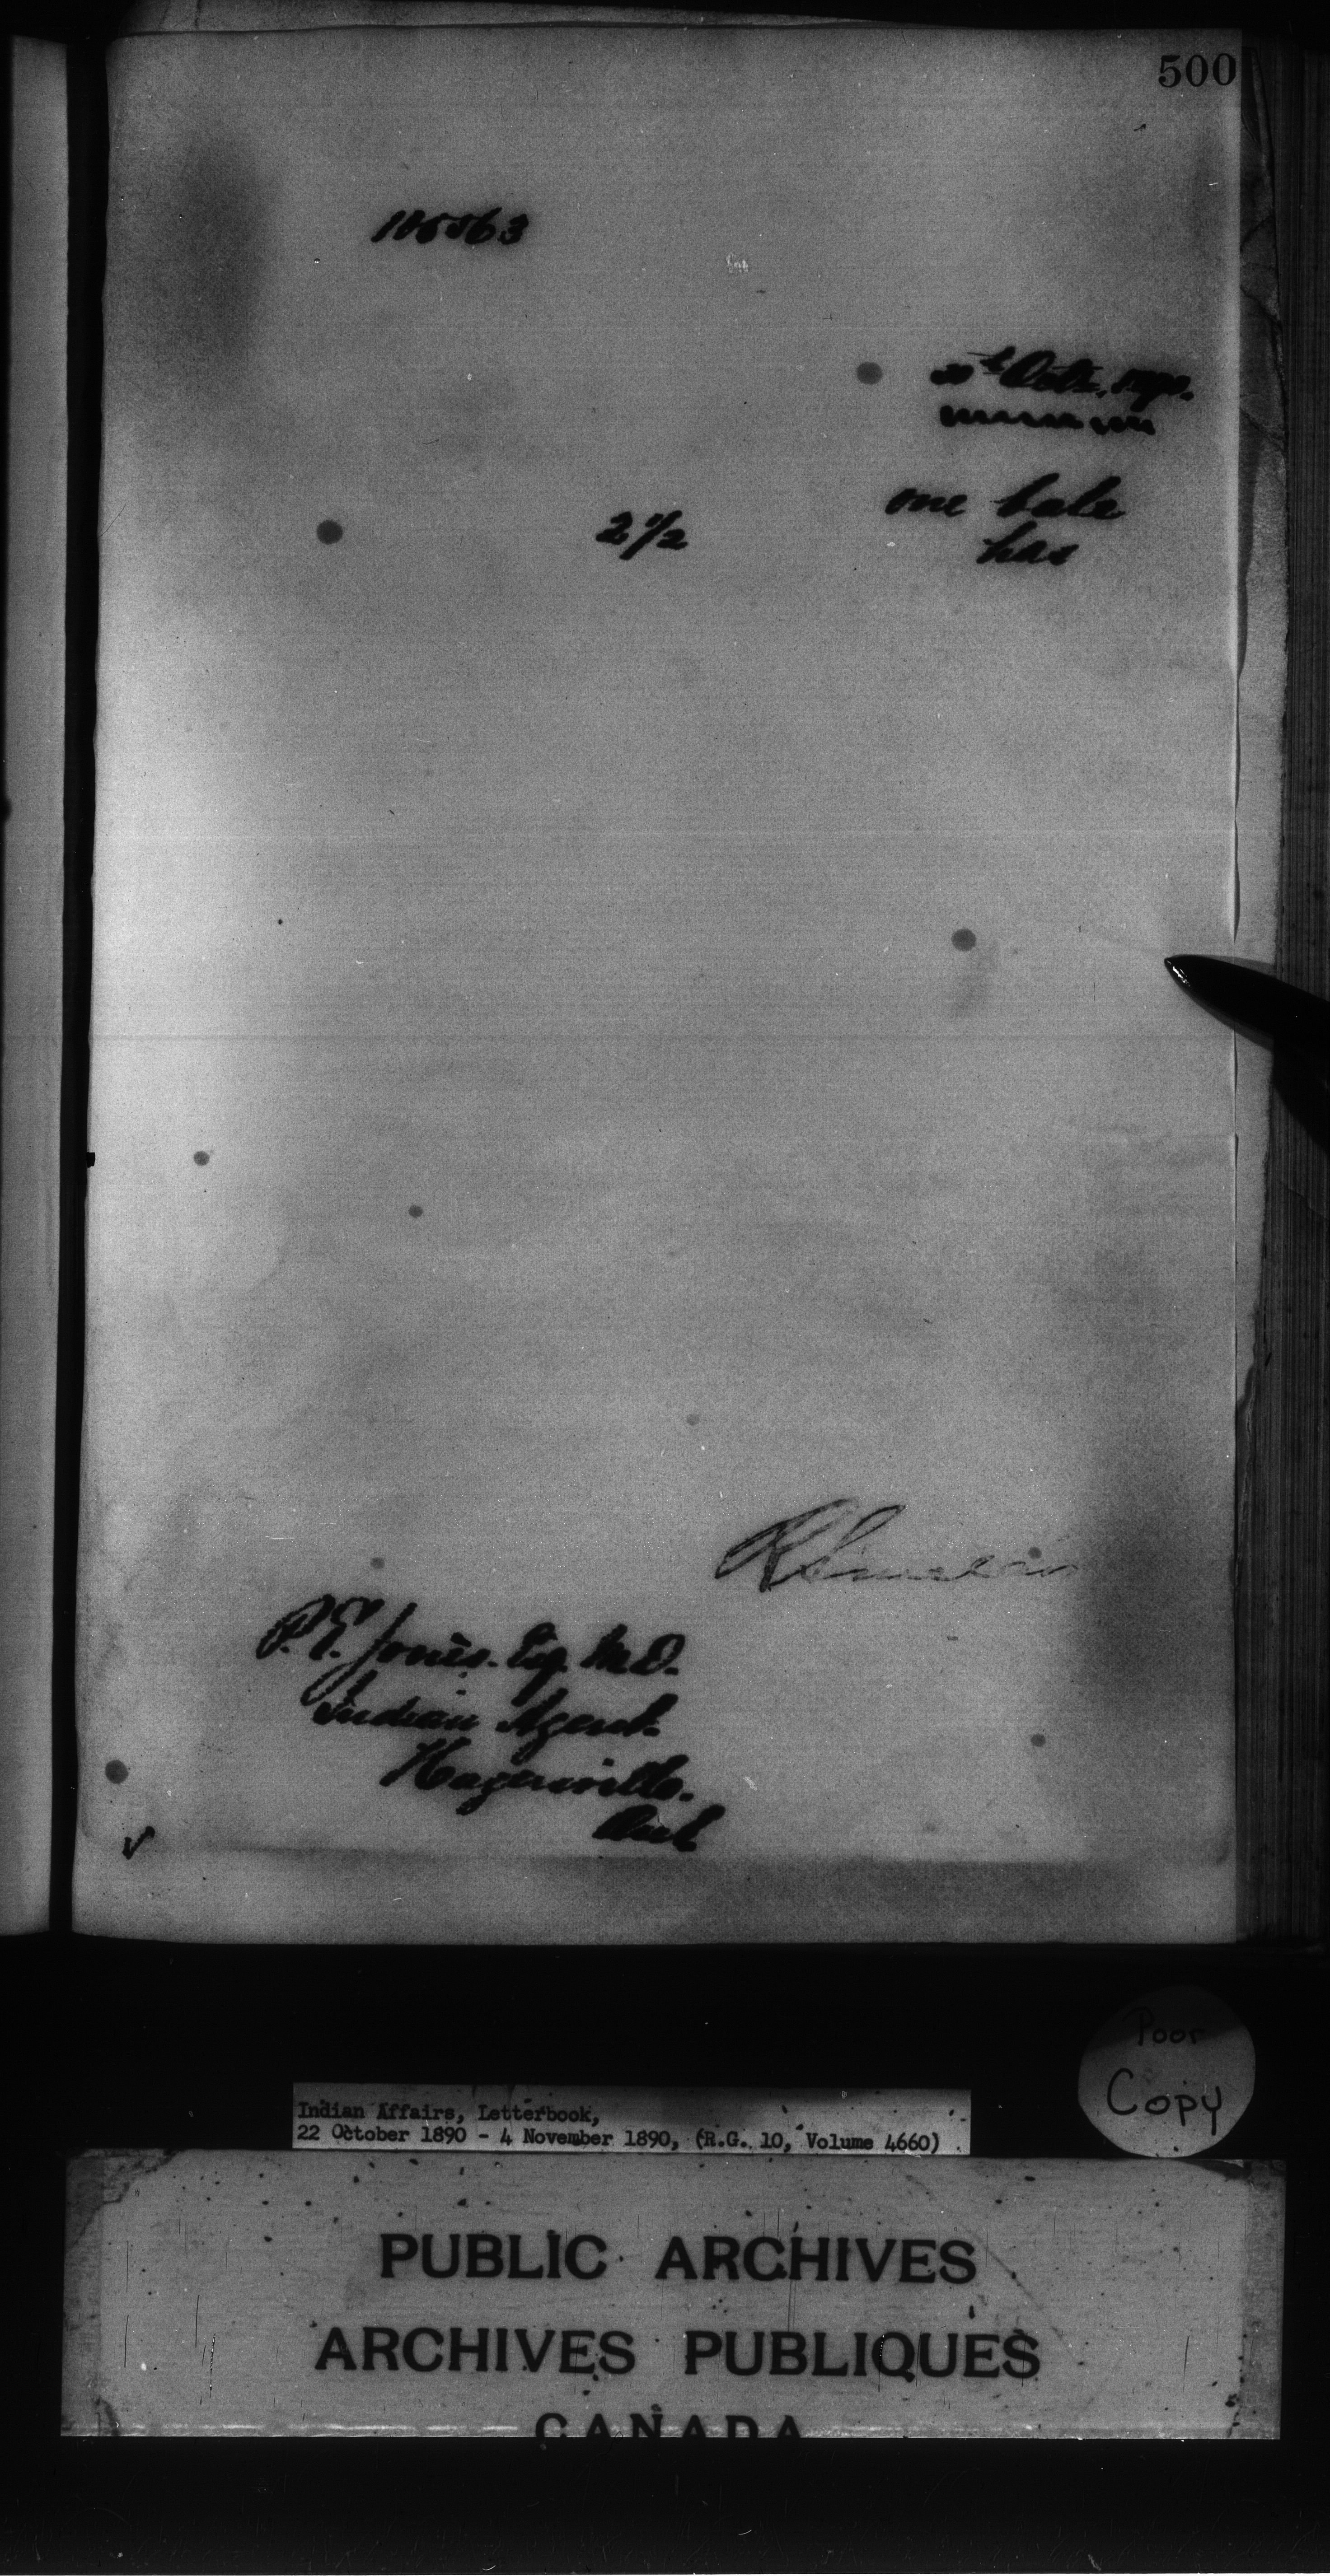 500
one bale
has
2 1/2
P. E. Jones. Esq. M.D.
Indian Agent.
Hagersville.
Ont
Poor
Copy
Indian Affairs, Letterbook,
22 October 1890 - 4 November 1890, (R.G. 10, Volume 4660)
PUBLIC ARCHIVES
ARCHIVES PUBLIQUES
CANADA